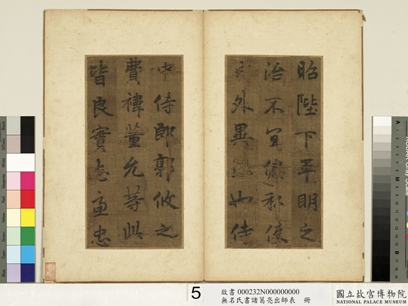 昭陛下平明之
治不宜偏私使
內外異法也侍
中侍郎郭攸之
費禕董允等此
皆良實志慮忠
5
故書 000232N000000000
無名氏書諸葛亮出師表 冊
國立故宮博物院
NATIONAL PALACE MUSEUM